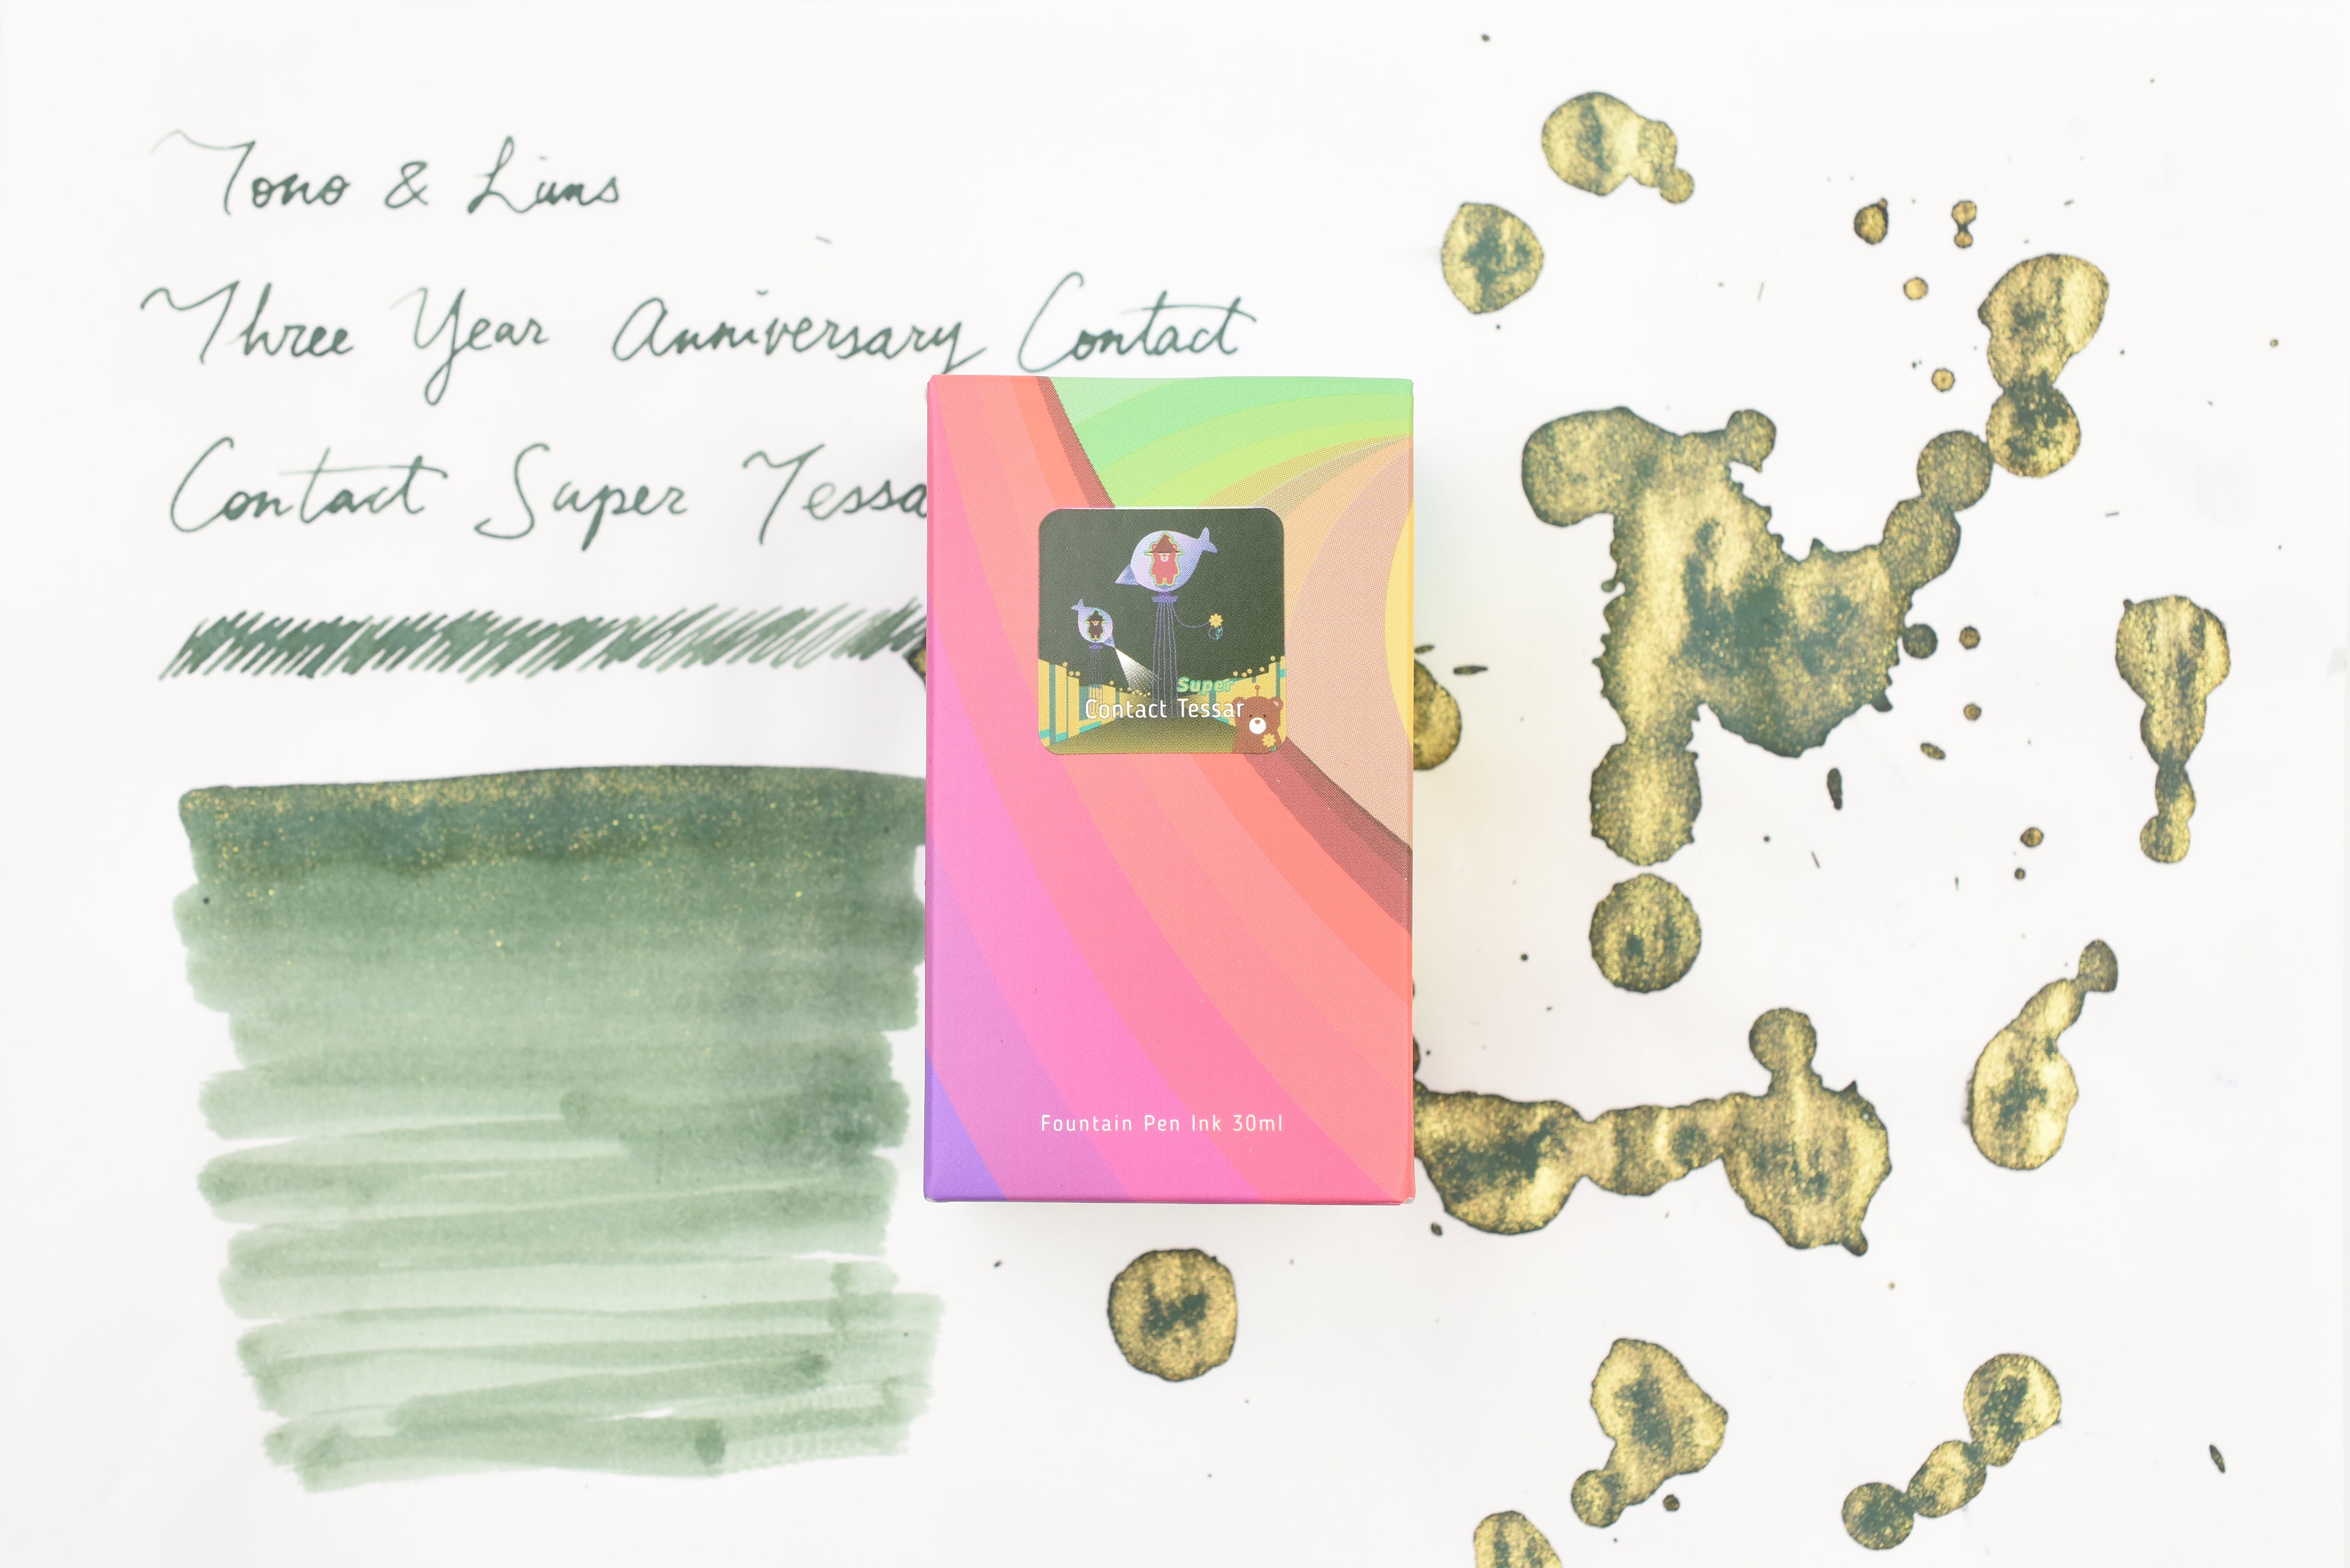 Tono & Lims
Three Year Anniversary Contact
Contact Super Tessa
Super
Contact Tessar
Fountain Pen Ink 30ml